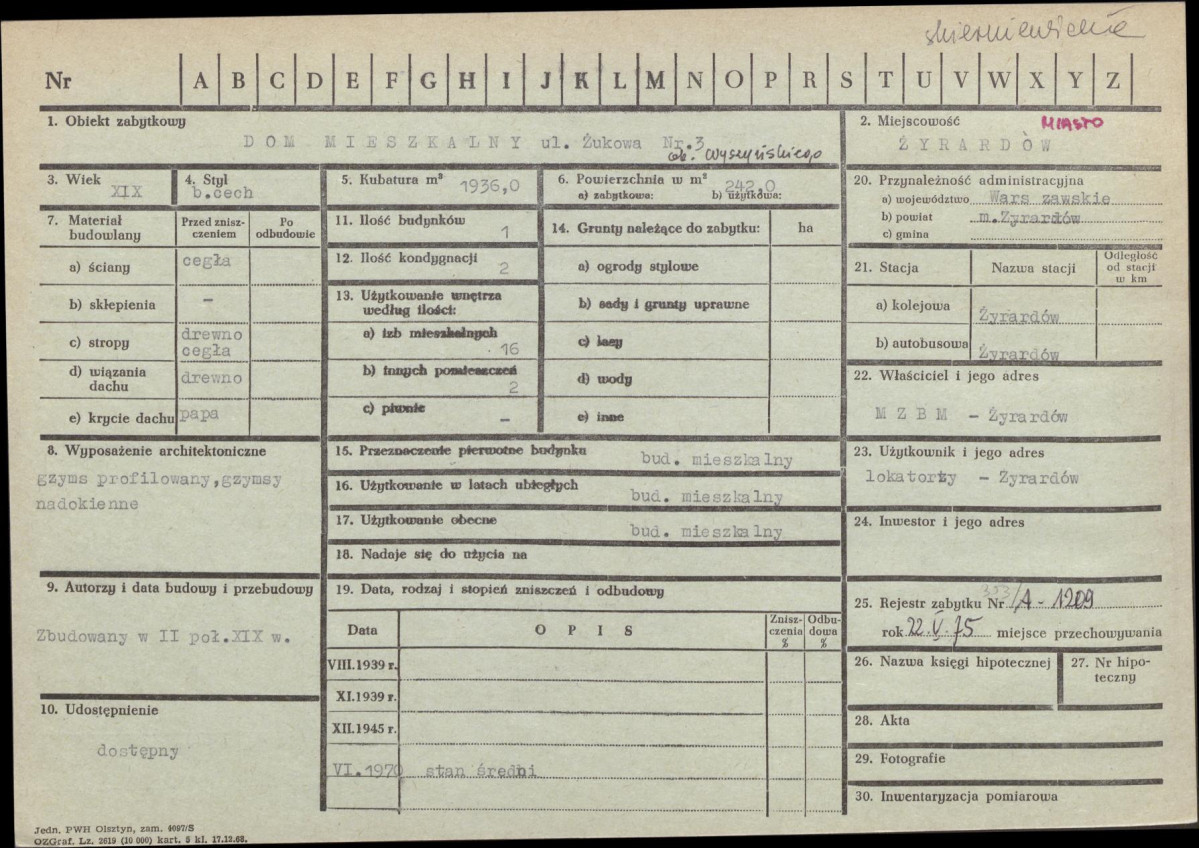 skierniewickie
Nr A B C D E F G H I J K L M N O P R S T U V W X Y Z
1. Obiekt zabytkowy
DOM MIESZKALNY ul. Żukowa Nr.3
ob. Wyszyńskiego
2. Miejscowość MIASTO
ŻYRARDÓW
3. Wiek
XIX
4. Styl
b.cech
5. Kubatura m³ 1936,0
6. Powierzchnia w m² 242,0
a) zabytkowa: b) użytkowa:
7. Materiał budowlany
Przed zniszczeniem
Po odbudowie
a) ściany cegła
b) sklepienia –
c) stropy drewno
cegła
d) wiązania dachu drewno
e) krycie dachu papa
8. Wyposażenie architektoniczne
gzyms profilowany,gzymsy
nadokienne
9. Autorzy i data budowy i przebudowy
Zbudowany w II poł.XIX w.
10. Udostępnienie
dostępny
11. Ilość budynków 1
12. Ilość kondygnacji 2
13. Użytkowanie wnętrza
według ilości:
a) izb mieszkalnych 16
b) innych pomieszczeń 2
c) piwnic –
14. Grunty należące do zabytku: ha
a) ogrody stylowe
b) sady i grunty uprawne
c) lasy
d) wody
e) inne
15. Przeznaczenie pierwotne budynku bud. mieszkalny
16. Użytkowanie w latach ubiegłych bud. mieszkalny
17. Użytkowanie obecne bud. mieszkalny
18. Nadaje się do użycia na
19. Data, rodzaj i stopień zniszczeń i odbudowy
Data OPIS Zniszczenia % Odbudowa %
VIII.1939 r.
XI.1939 r.
XII.1945 r.
VI.1970 stan średni
20. Przynależność administracyjna
a) województwo Wars zawskie
b) powiat m.Żyrardów
c) gmina
21. Stacja Nazwa stacji Odległość od stacji w km
a) kolejowa Żyrardów
b) autobusowa Żyrardów
22. Właściciel i jego adres
MZBM – Żyrardów
23. Użytkownik i jego adres
lokatorzy – Żyrardów
24. Inwestor i jego adres
25. Rejestr zabytku Nr 353/A-1209
rok 22.V.75 miejsce przechowywania
26. Nazwa księgi hipotecznej
27. Nr hipoteczny
28. Akta
29. Fotografie
30. Inwentaryzacja pomiarowa
Jedn. PWH Olsztyn, zam. 4097/S
OZGraf. Lz. 2619 (10 000) kart. 5 kl. 17.12.68.